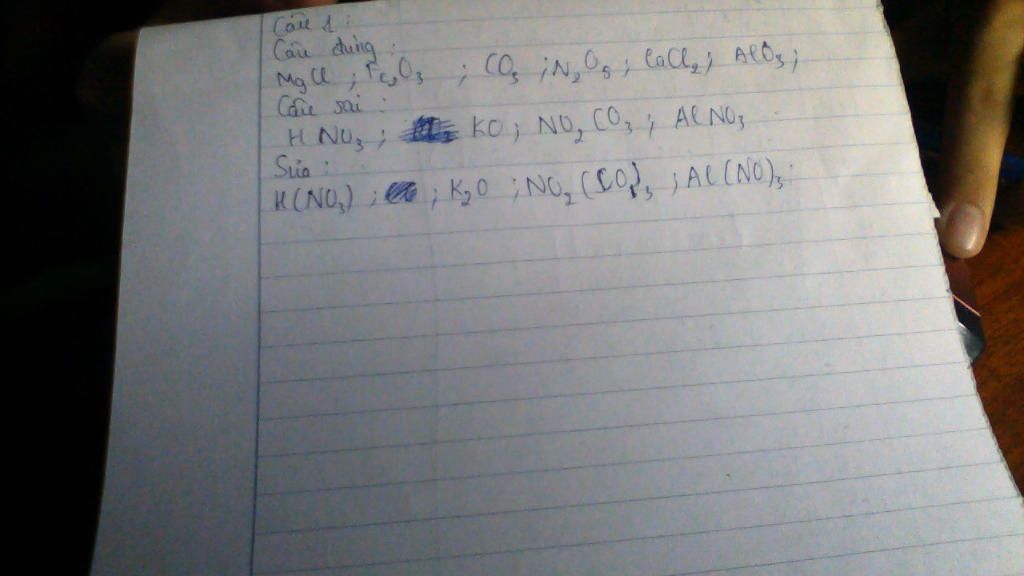 Câu 1:
Câu đúng:
MgCl ; Fe₂O₃ ; CO₃ ; N₂O₅ ; CaCl₂ ; AlO₃ ;
Câu sai:
HNO₃ ; KO ; NO₂CO₃ ; AlNO₃
Sửa:
H(NO₃) ; ; K₂O ; NO₂(CO)₃ ; Al(NO)₃